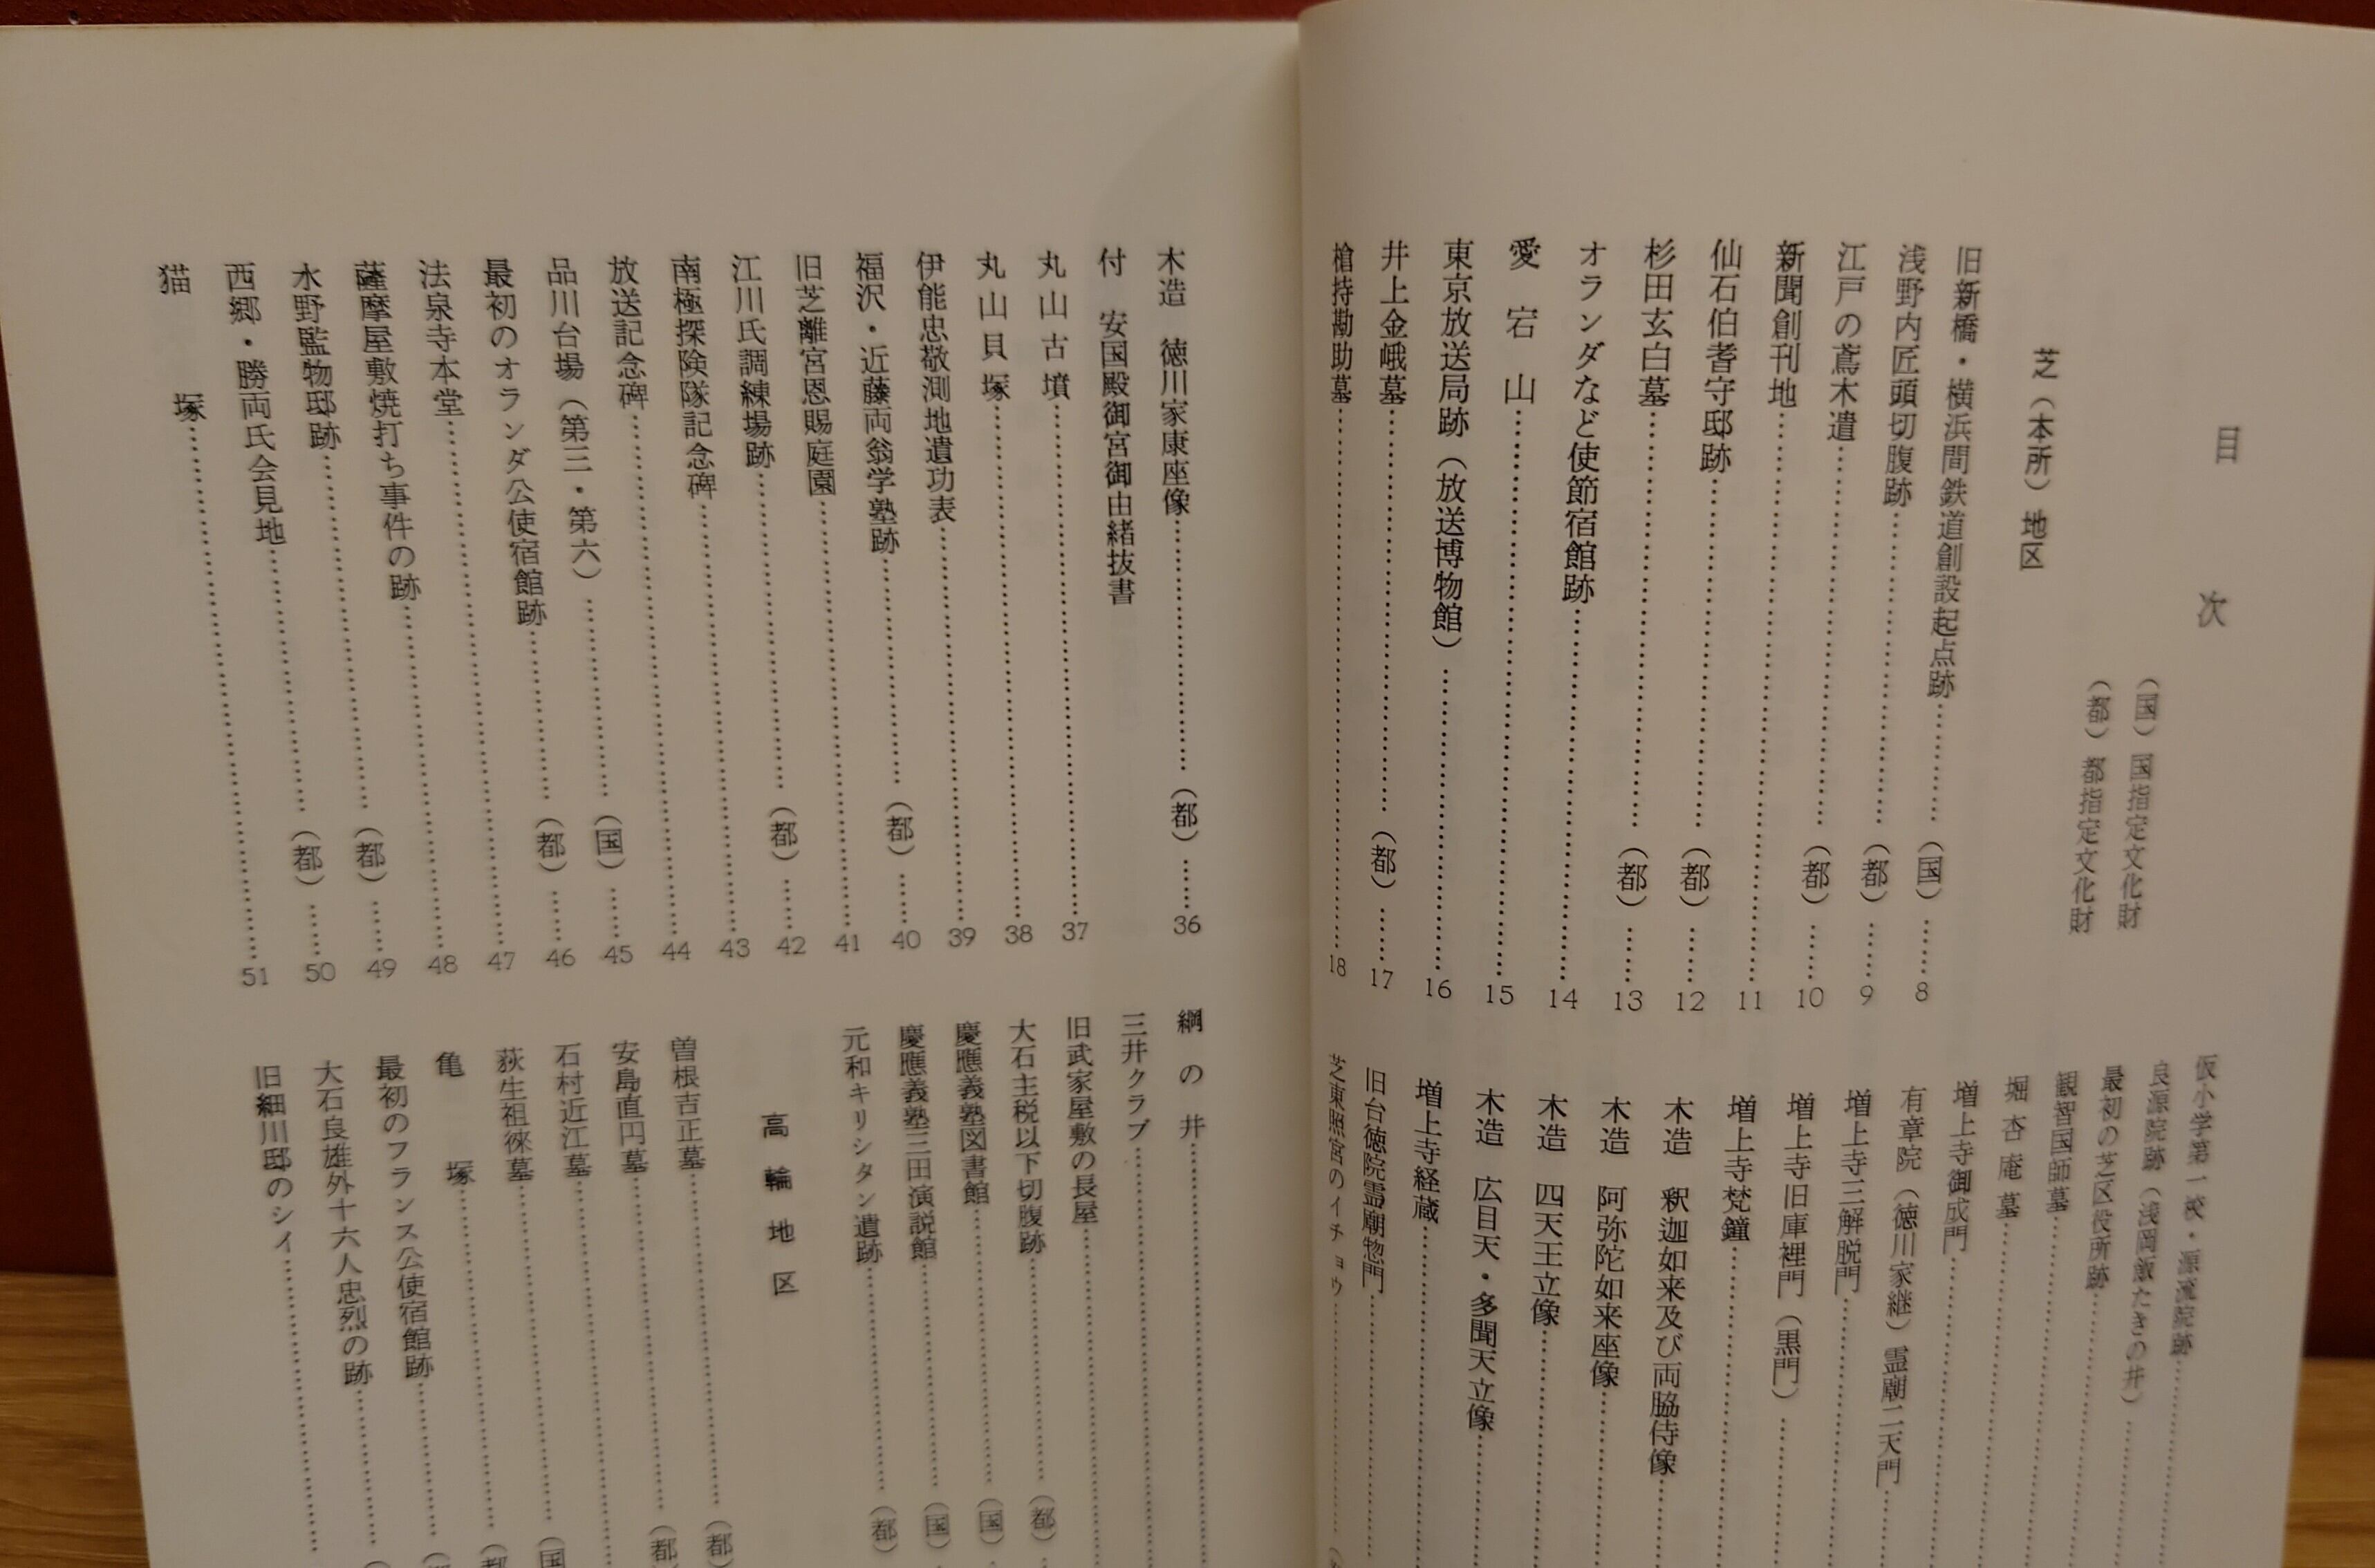 目次
（国）国指定文化財
（都）都指定文化財
芝（本所）地区
旧新橋・横浜間鉄道創設起点跡……（国）……8
浅野内匠頭切腹跡……（都）……9
江戸の鳶木遣……（都）……10
新聞創刊地……11
仙石伯耆守邸跡……（都）……12
杉田玄白墓……（都）……13
オランダなど使節宿館跡……14
愛宕山……15
東京放送局跡（放送博物館）……16
井上金峨墓……（都）……17
槍持勘助墓……18
仮小学第一校・源流院跡……
良源院跡（浅岡飯たきの井）……
最初の芝区役所跡……
観智国師墓……
堀杏庵墓……
増上寺御成門……
有章院（徳川家継）霊廟二天門……
増上寺三解脱門……
増上寺旧庫裡門（黒門）……
増上寺梵鐘……
木造　釈迦如来及び両脇侍像……
木造　阿弥陀如来座像……
木造　四天王立像……
木造　広目天・多聞天立像……
増上寺経蔵……
旧台徳院霊廟惣門……
芝東照宮のイチョウ……
木造　徳川家康座像……（都）……36
付　安国殿御宮御由緒抜書
丸山古墳……37
丸山貝塚……38
伊能忠敬測地遺功表……39
福沢・近藤両翁学塾跡……（都）……40
旧芝離宮恩賜庭園……41
江川氏調練場跡……（都）……42
南極探険隊記念碑……43
放送記念碑……44
品川台場（第三・第六）……（国）……45
最初のオランダ公使宿館跡……（都）……46
法泉寺本堂……47
薩摩屋敷焼打ち事件の跡……48
水野監物邸跡……（都）……49
西郷・勝両氏会見地……（都）……50
猫塚……51
綱の井……
三井クラブ……
旧武家屋敷の長屋……
大石主税以下切腹跡……（都）
慶應義塾図書館……（国）
慶應義塾三田演説館……（国）
元和キリシタン遺跡……（都）
高輪地区
曽根吉正墓……（都）
安島直円墓……（都）
石村近江墓……
荻生徂徠墓……（国
亀塚……（都
最初のフランス公使宿館跡……
大石良雄外十六人忠烈の跡……
旧細川邸のシイ……